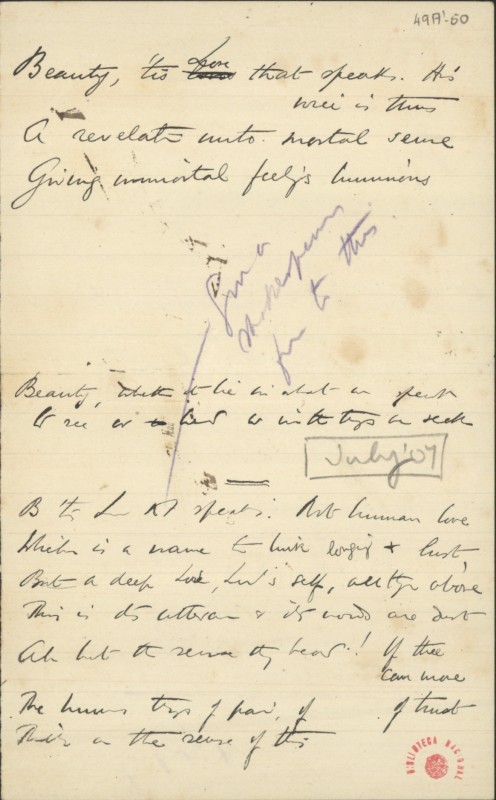 49A¹-50
Beauty, 'tis Love that speaks. His
voice is thus
A revelat unto mortal sense
Giving immortal feelgs luminous
Give a
Shakespearean
to this
Beauty, whether it lie in what we speak
Or see or or in the tgs we seek
July '07
B 'tis Love tt speaks. Not human love
Which is a name to link longing & lust,
But a deep Love, Love's self, all tgs above
This is its utterance & its words are dust
Ah but the sense they bear! If thee
can move
The human tgs of pain, of of trust
on the sense of this
BIBLIOTECA NACIONAL